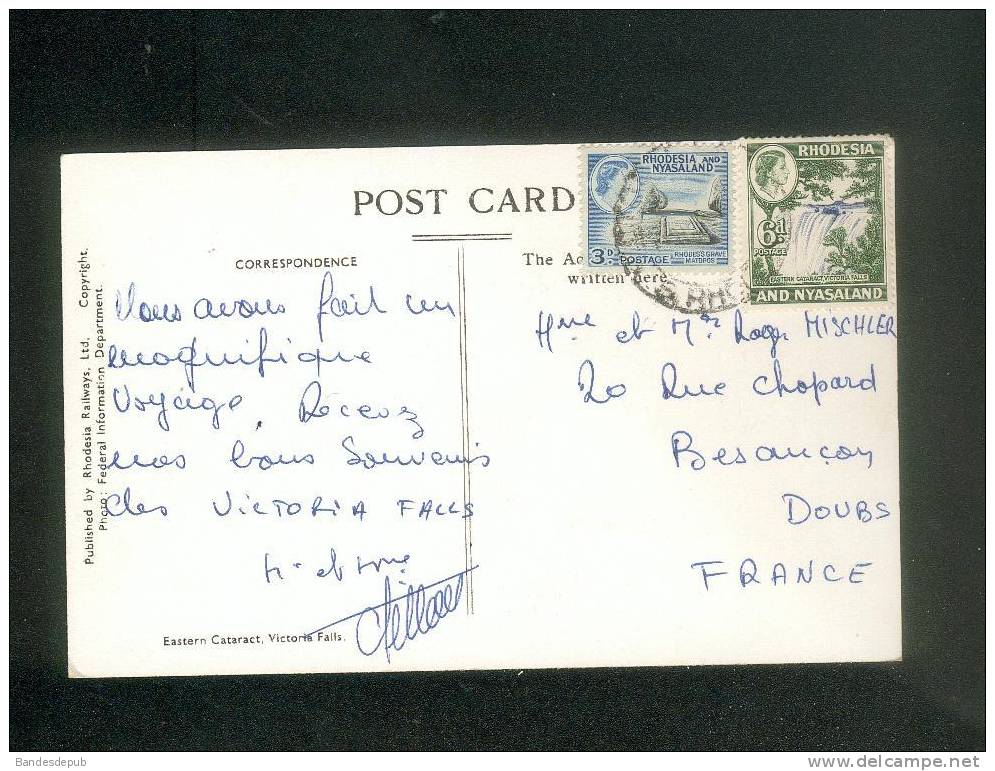 POST CARD
CORRESPONDENCE
The Ad
written here
Published by Rhodesia Railways, Ltd. Copyright.
Photo: Federal Information Department.
Nous avons fait un
magnifique
Voyage, Recevez
nos bons Souvenirs
des VICTORIA FALLS
Mr et Mme
Eastern Cataract, Victoria Falls.
RHODESIA AND
NYASALAND
3D.
POSTAGE
RHODES'S GRAVE
MATOPOS
RHODESIA
6d
POSTAGE
EASTERN CATARACT, VICTORIA FALLS
AND NYASALAND
Mme et Mr Roger MISCHLER
20 Rue Chopard
Besançon
DOUBS
FRANCE
Bandesdepub
www.delcampe.net